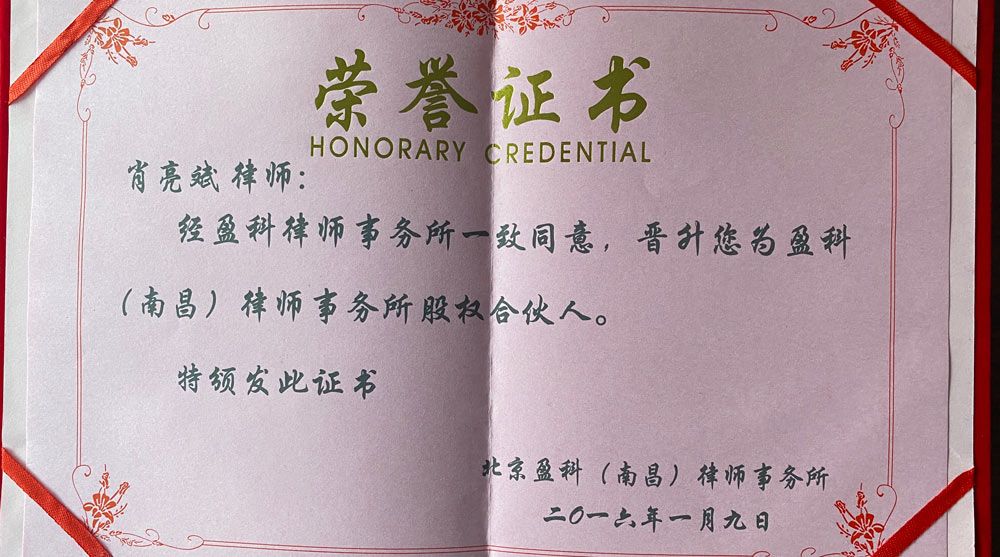 荣誉证书
HONORARY CREDENTIAL
肖亮斌律师：
经盈科律师事务所一致同意，晋升您为盈科
（南昌）律师事务所股权合伙人。
特颁发此证书
北京盈科（南昌）律师事务所
二〇一六年一月九日